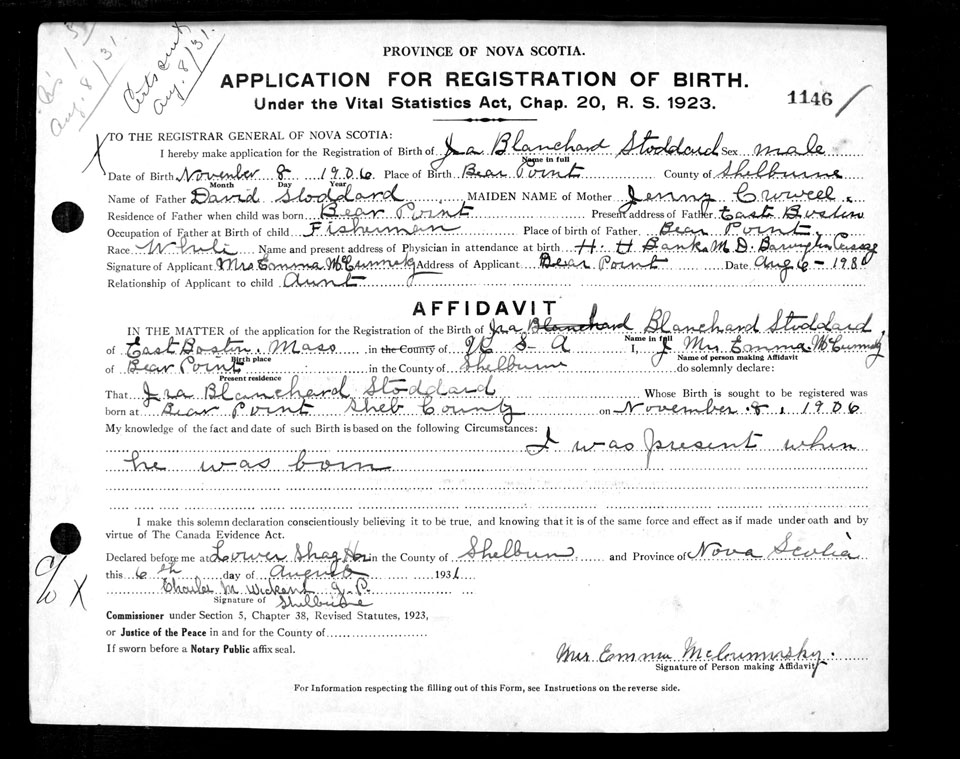 Aug. 8/31.
Certs sent
Aug. 8/31.
PROVINCE OF NOVA SCOTIA.
APPLICATION FOR REGISTRATION OF BIRTH.
Under the Vital Statistics Act, Chap. 20, R. S. 1923.
1146
X
TO THE REGISTRAR GENERAL OF NOVA SCOTIA:
I hereby make application for the Registration of Birth of Ira Blanchard Stoddard Sex male
Name in full
Date of Birth November 8 1906 Place of Birth Bear Point County of Shelburne
Month Day Year
Name of Father David Stoddard MAIDEN NAME of Mother Jenny Crowell.
Residence of Father when child was born Bear Point Present address of Father East Boston
Occupation of Father at Birth of child Fisherman Place of birth of Father Bear Point
Race White Name and present address of Physician in attendance at birth H. H Banks M D.
Signature of Applicant Mrs Emma Address of Applicant Bear Point Date Aug 6 - 193
Relationship of Applicant to child Aunt
AFFIDAVIT
IN THE MATTER of the application for the Registration of the Birth of Ira Blanchard Blanchard Stoddard
Name in full
of East Boston. Mass in the County of U S A I, I Mrs Emma
Birth place Name of person making Affidavit
of Bear Point in the County of Shelburne do solemnly declare:
Present residence
That Ira Blanchard Stoddard Whose Birth is sought to be registered was
born at Bear Point Shelb County on November 8, 1906
My knowledge of the fact and date of such Birth is based on the following Circumstances:
I was present when
he was born
I make this solemn declaration conscientiously believing it to be true, and knowing that it is of the same force and effect as if made under oath and by
virtue of The Canada Evidence Act.
Declared before me at Lower Shag Hr in the County of Shelburn and Province of Nova Scotia
this 6th day of August 1931
Charles M Wickens J. P.
Signature of Shelburne
Commissioner under Section 5, Chapter 38, Revised Statutes, 1923,
or Justice of the Peace in and for the County of
If sworn before a Notary Public affix seal.
c/o X
Mrs Emma
Signature of Person making Affidavit
For Information respecting the filling out of this Form, see Instructions on the reverse side.